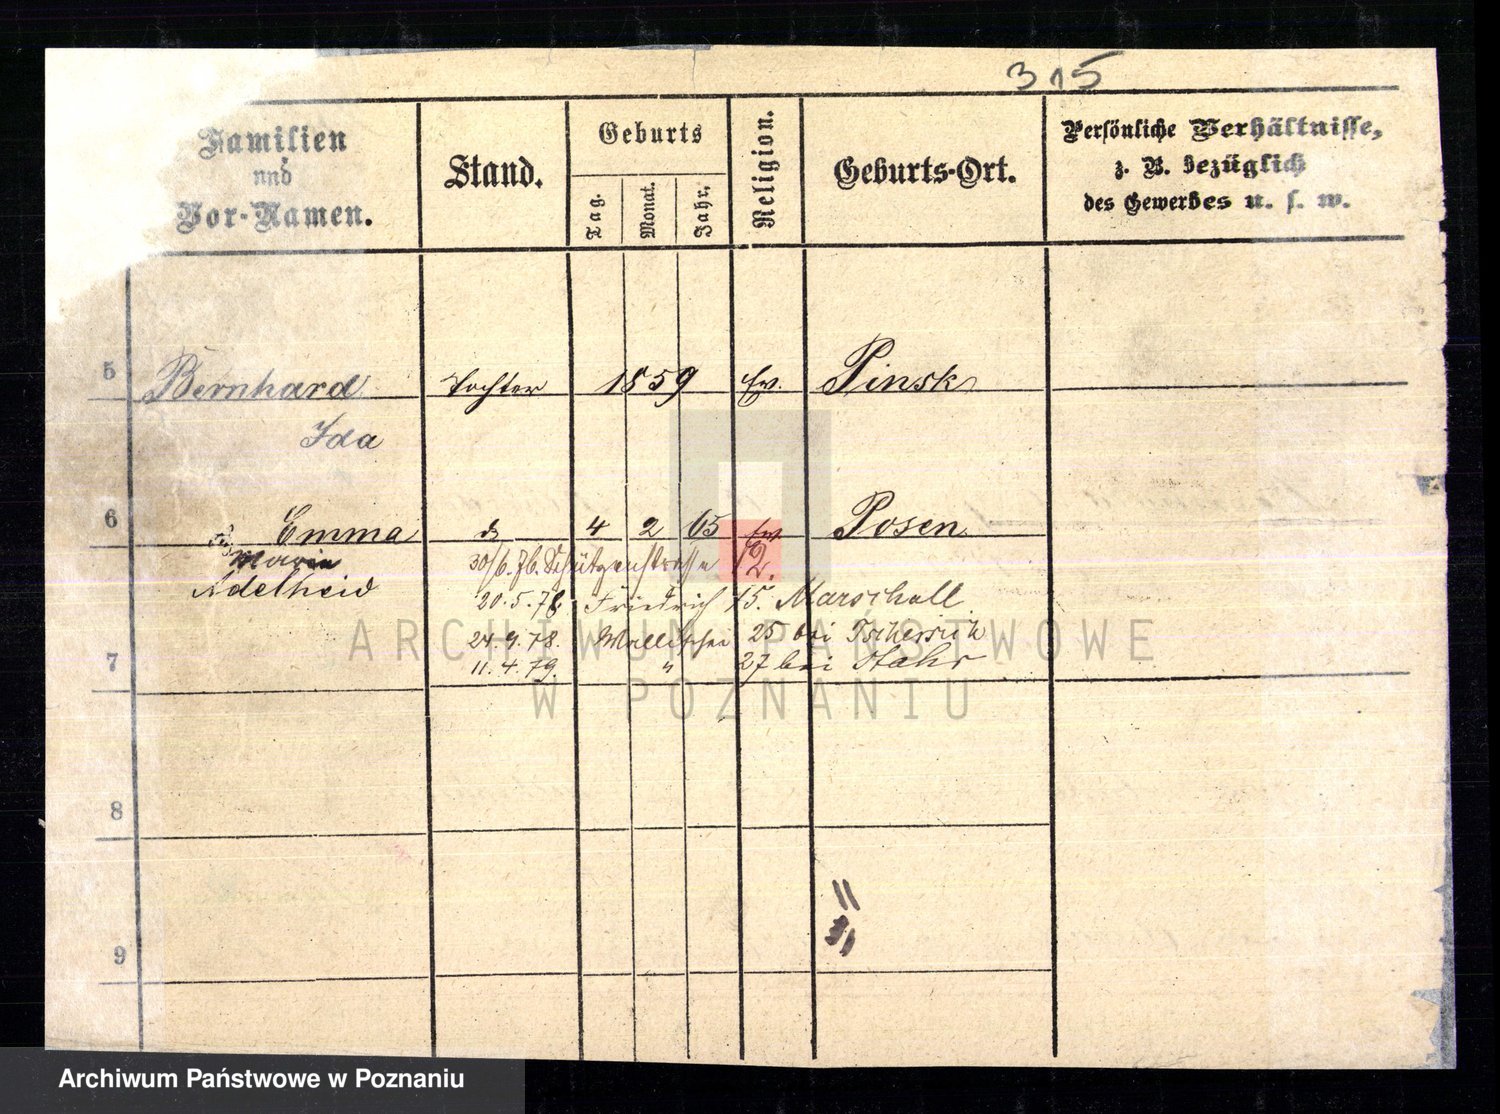 315
Familien
und
Vor-Namen.
Stand.
Geburts
Tag.
Monat.
Jahr.
Religion.
Geburts-Ort.
Persönliche Verhältnisse,
z. B. bezüglich
des Gewerbes u. s. w.
5 Bernhard Tochter 1859 Ev. Pinsk
Ida
6 Emma do 4 2 65 Ev Posen
Marie 30/6.76. Schützenstrasse 12.
Adelheid 20.5.78 Friedrich 15. Marschall
24.9.78. Wallischei 25 bei
7 11.4.79. " 27 bei Stahr
8
9
ARCHIWUM PAŃSTWOWE
W POZNANIU
Archiwum Państwowe w Poznaniu